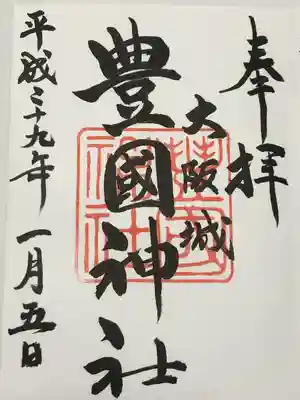 奉拝
大阪城
豊國神社
平成二十九年一月五日